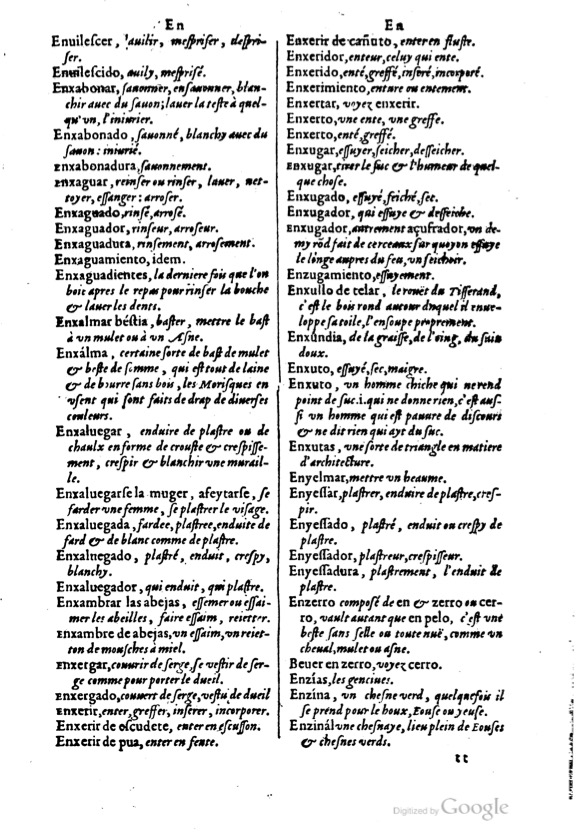 En
Enuilescer, auilir, mespriser, despri-
ser.
Enuilescido, auily, mesprisé.
Enxabonar, sauonner, ensauonner, blan-
chir auec du sauon; lauer la teste à quel-
qu'vn, l'iniurier.
Enxabonado, sauonné, blanchy auec du
sauon: iniurié.
Enxabonadura, sauonnement.
Enxaguar, reinser ou rinser, lauer, net-
toyer, essanger: arroser.
Enxaguado, rinsé, arrosé.
Enxaguador, rinseur, arroseur.
Enxaguadura, rinsement, arrosement.
Enxaguamiento, idem.
Enxaguadientes, la derniere fois que l'on
boit apres le repas pour rinser la bouche
& lauer les dents.
Enxalmar béstia, baster, mettre le bast
à vn mulet ou à vn Asne.
Enxálma, certaine sorte de bast de mulet
& beste de somme, qui est tout de laine
& de bourre sans bois, les Morisques en
vsent qui sont faits de drap de diuerses
couleurs.
Enxaluegar, enduire de plastre ou de
chaulx en forme de crouste & crespisse-
ment, crespir & blanchir vne murail-
le.
Enxaluegarse la muger, afeytarse, se
farder vne femme, se plastrer le visage.
Enxaluegada, fardee, plastree, enduite de
fard & de blanc comme de plastre.
Enxaluegado, plastré, enduit, crespy,
blanchy.
Enxaluegador, qui enduit, qui plastre.
Enxambrar las abejas, essemer ou essai-
mer les abeilles, faire essaim, reietter.
Enxambre de abejas, vn essaim, vn reiet-
ton de mousches à miel.
Enxergar, couurir de serge, se vestir de ser-
ge comme pour porter le dueil.
Enxergado, couuert de serge, vestu de dueil
Enxerir, enter, greffer, inserer, incorporer.
Enxerir de escudete, enter en escusson.
Enxerir de pua, enter en fente.
En
Enxerir de cañuto, enter en fluste.
Enxeridor, enteur, celuy qui ente.
Enxerido, enté, greffé, inseré, incorporé.
Enxerimiento, enture ou entement.
Enxertar, voyez enxerir.
Enxerto, vne ente, vne greffe.
Enxerto, enté, greffé.
Enxugar, essuyer, seicher, desseicher.
Enxugar, tirer le suc & l'humeur de quel-
que chose.
Enxugado, essuyé, seiché, sec.
Enxugador, qui essuye & desseiche.
Enxugador, autrement açufrador, vn de-
my rõd fait de cerceaux sur quoy on essuye
le linge aupres du feu, vn seichoir.
Enzugamiento, essuyement.
Enxullo de telar, le rouët du Tisserand,
c'est le bois rond autour duquel il enue-
loppe sa toile, l'ensoupe proprement.
Enxúndia, de la graisse, de l'oing, du suin
doux.
Enxuto, essuyé, sec, maigre.
Enxuto, vn homme chiche qui ne rend
point de suc. i. qui ne donne rien, c'est aus-
si vn homme qui est pauure de discours
& ne dit rien qui ayt du suc.
Enxutas, vne sorte de triangle en matiere
d'architecture.
Enyelmar, mettre vn heaume.
Enyessar, plastrer, enduire de plastre, cres-
pir.
Enyessado, plastré, enduit ou crespy de
plastre.
Enyessador, plastreur, crespisseur.
Enyessadura, plastrement, l'enduit de
plastre.
Enzerro composé de en & zerro ou cer-
ro, vault autant que en pelo, c'est vne
beste sans selle ou toute nuë, comme vn
cheual, mulet ou asne.
Beuer en zerro, voyez cerro.
Enzías, les genciues.
Enzína, vn chesne verd, quelquefois il
se prend pour le houx, Eouse ou yeuse.
Enzinál vne chesnaye, lieu plein de Eouses
& chesnes verds.
tt
Digitized by Google